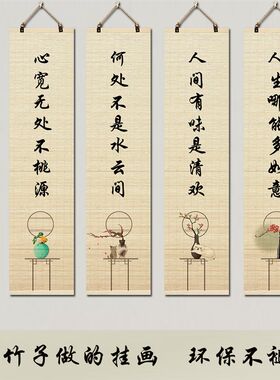 心宽无处不桃源
何处不是水云间
人间有味是清欢
人生哪能多如意
竹子做的挂画 环保不